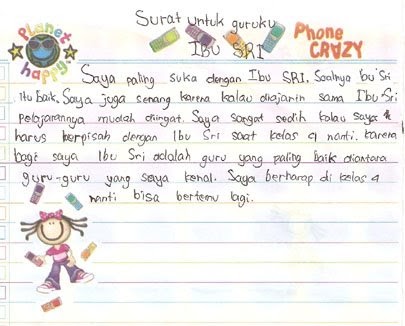 Surat untuk guruku
Planet happy.
IBU SRI
Phone CRAZY
Saya paling suka dengan Ibu SRI. Soalnya bu Sri
itu baik. Saya juga senang karena kalau diajarin sama Ibu Sri
pelajarannya mudah diingat. Saya sangat sedih kalau saya
harus berpisah dengan Ibu Sri saat kelas 4 nanti. Karena
bagi saya Ibu Sri adalah guru yang paling baik diantara
guru-guru yang saya kenal. Saya berharap di kelas 4
nanti bisa bertemu lagi.